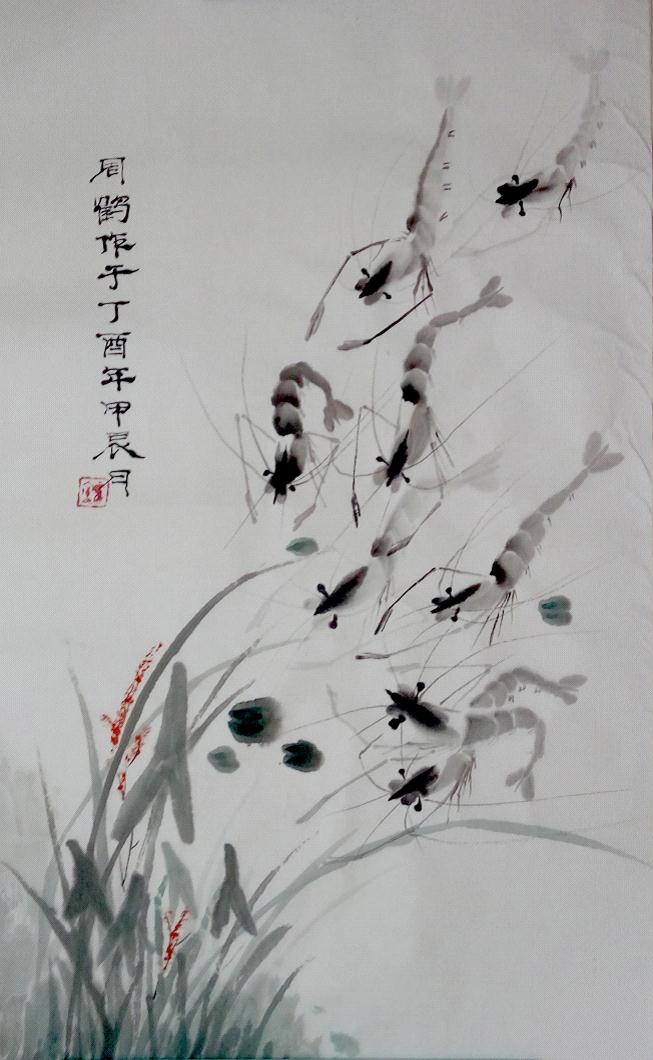 周鹤作于丁酉年甲辰月